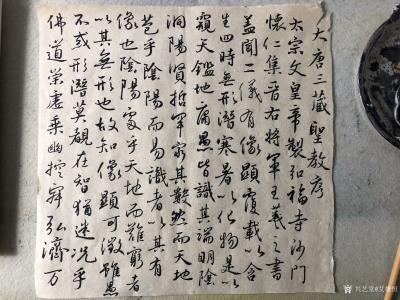 大唐三藏聖教序
太宗文皇帝製弘福寺沙門
懷仁集晉右將軍王羲之書
蓋聞二儀有像顯覆載以含
生四時無形潛寒暑以化物是以
窺天鑑地庸愚皆識其端明陰
洞陽賢哲罕窮其數然而天地
苞乎陰陽而易識者以其有
像也陰陽處乎天地而難窮者
以其無形也故知像顯可徵雖愚
不惑形潛莫覩在智猶迷況乎
佛道崇虛乘幽控寂弘濟万